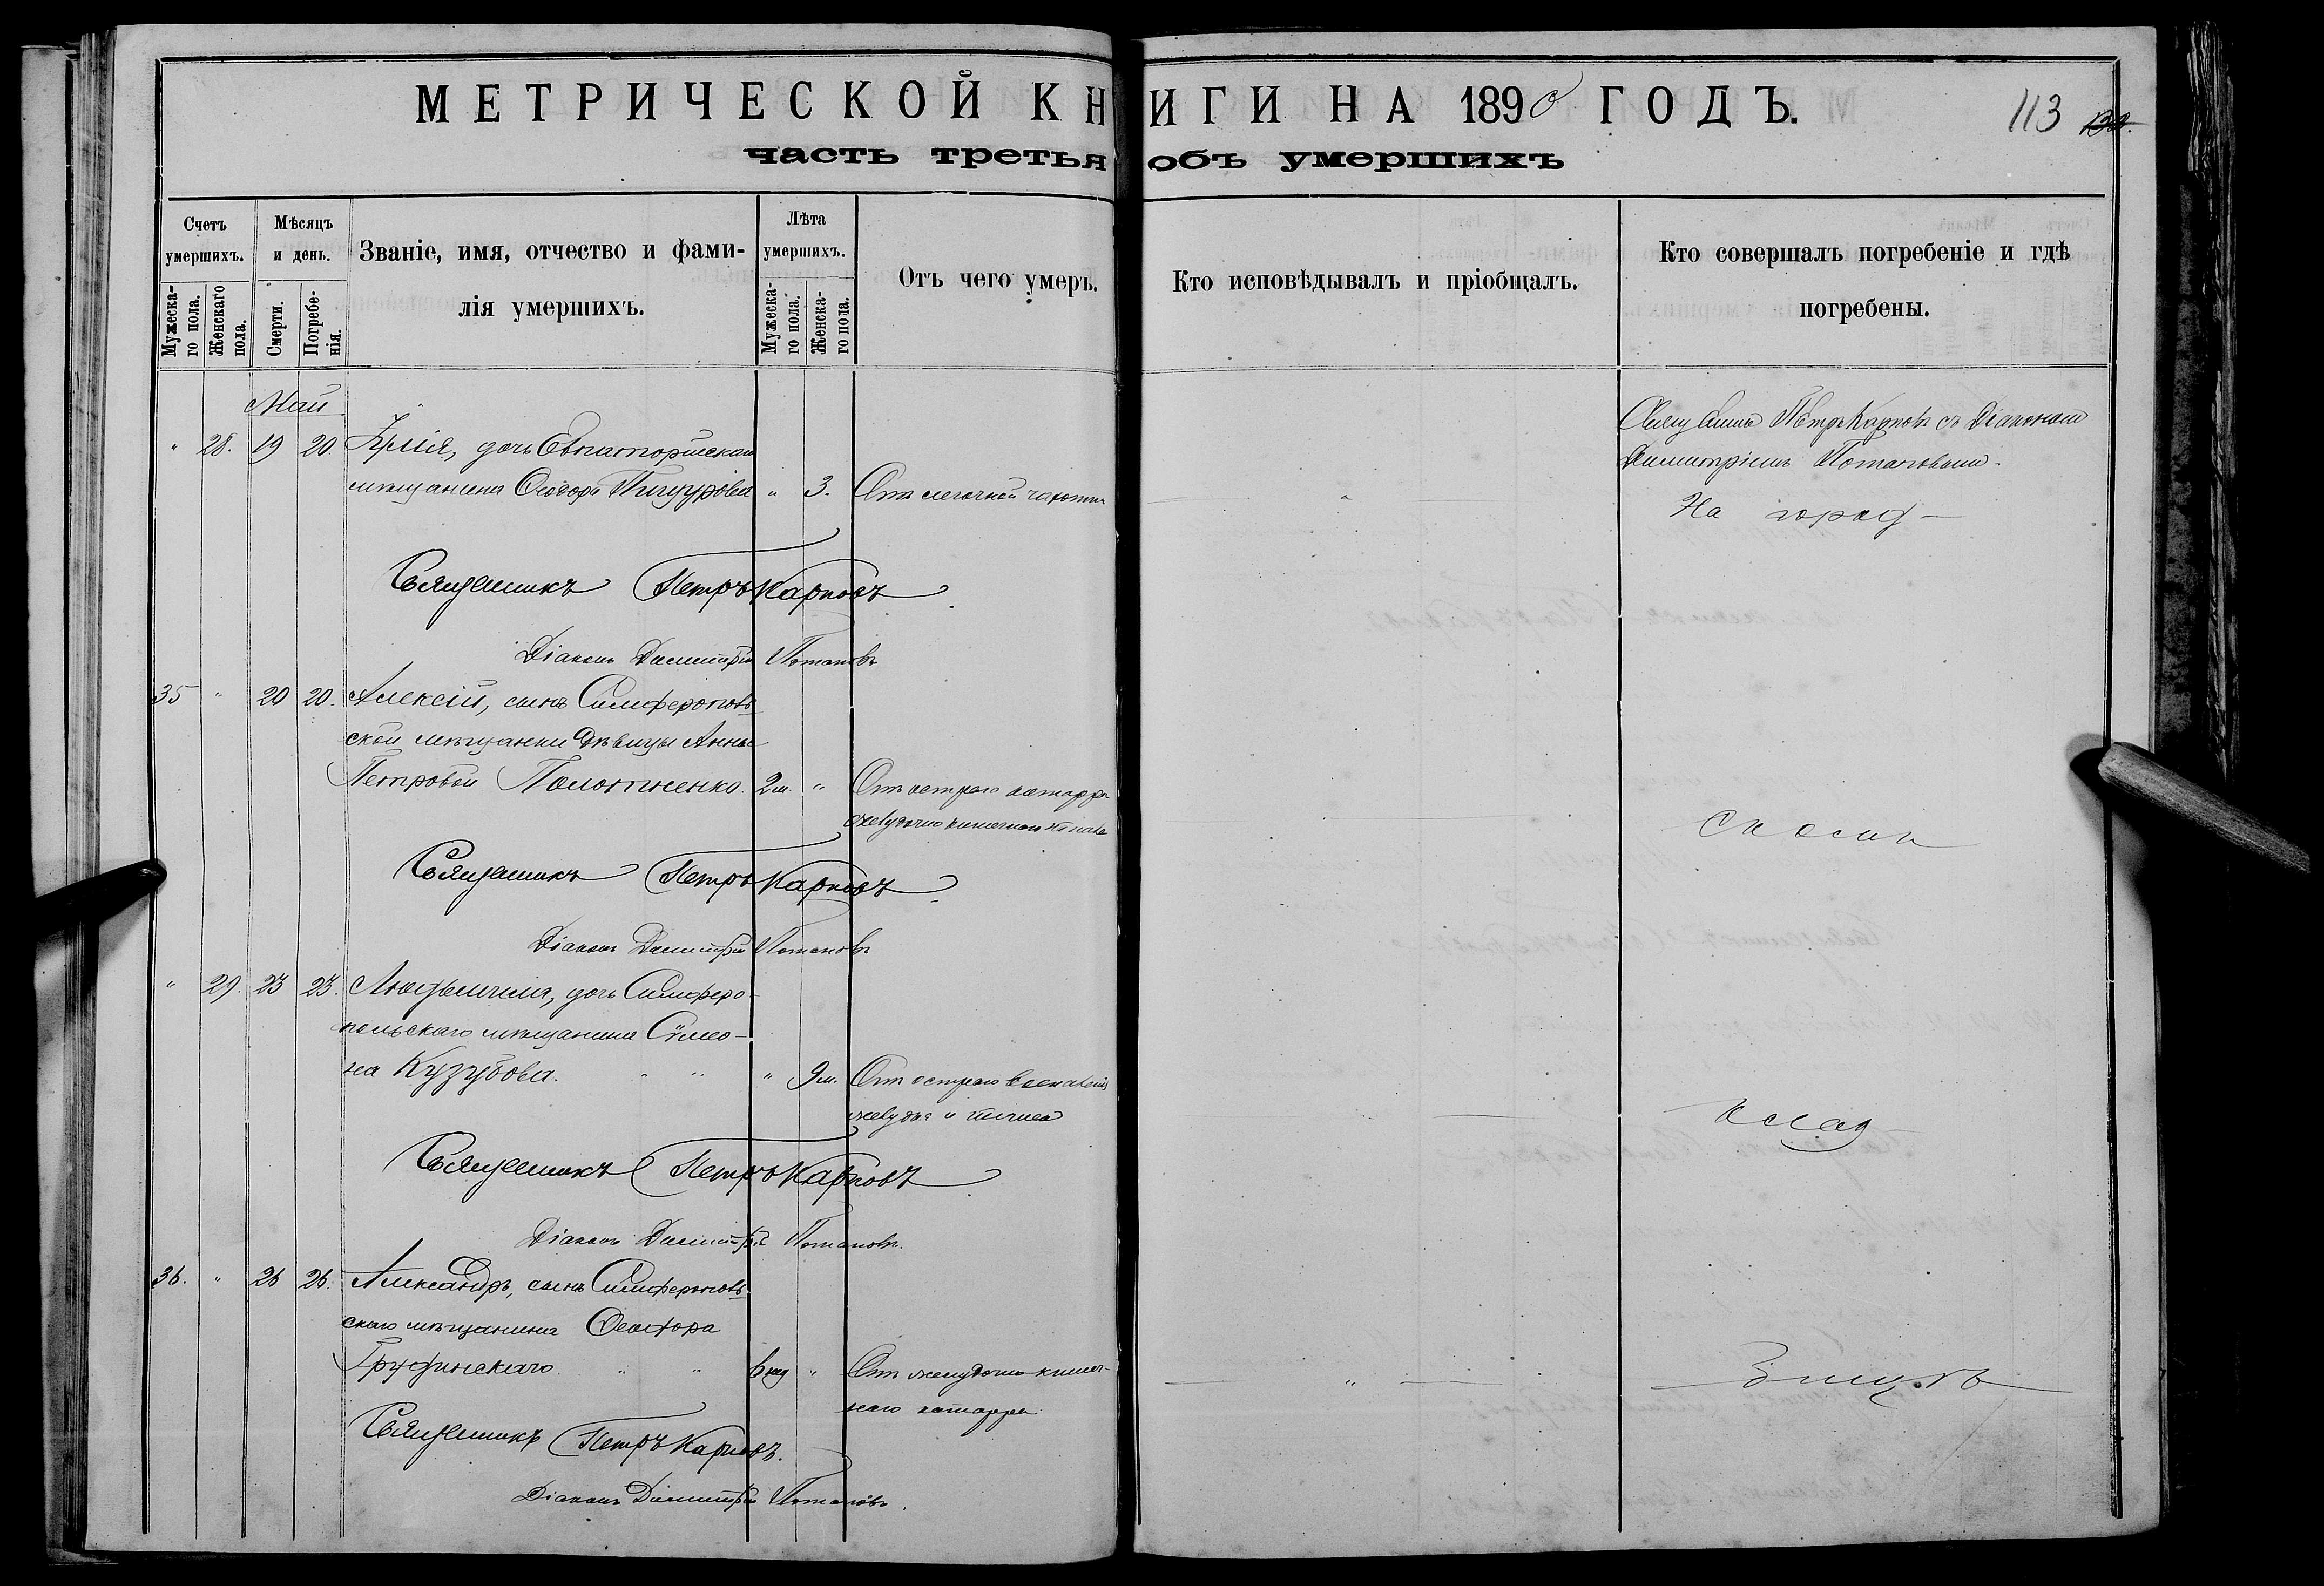 МЕТРИЧЕСКОЙ КНИГИ НА 1890 ГОДЪ.
113
часть третья объ умершихъ
Счетъ умершихъ.
Мужеска-
го пола.
Женскаго
пола.
Мѣсяцъ
и день.
Смерти.
Погребе-
нія.
Званіе, имя, отчество и фами-
лія умершихъ.
Лѣта
умершихъ.
Мужеска-
го пола.
Женска-
го пола.
Отъ чего умеръ.
Кто исповѣдывалъ и пріобщалъ.
Кто совершалъ погребеніе и гдѣ
погребены.
Май
" 28. 19 20. дочь Евпаторійскаго
мѣщанина Ѳеодора " 3. Отъ легочной чахотки
Петръ Карповъ съ Діакономъ
Димитріемъ Потаповымъ.
На город
Священникъ Петръ Карповъ
Діаконъ Димитрій Потаповъ
35 " 20 20. Алексій, сынъ Симферополь
ской мѣщанки дѣвицы Анны
Петровой Полотненко. 2 м. " Отъ остраго катарра
желудочно кишечнаго
Священникъ Петръ Карповъ
Діаконъ Димитрій Потаповъ
" 29. 23 23. Людьмила, дочь Симферо-
польскаго мѣщанина Сѵмео-
на Кузубова. " " " 9 м. Отъ остраго воспаленія
желудка и кишекъ
клад
Священникъ Петръ Карповъ
Діаконъ Димитрій Потаповъ.
36. " 26 26. Александръ, сынъ Симферополь
скаго мѣщанина Ѳеодора
" " 6 нед " Отъ желудочно-кишеч-
наго катарра
"
Священникъ Петръ Карповъ.
Діаконъ Димитрій Потаповъ.